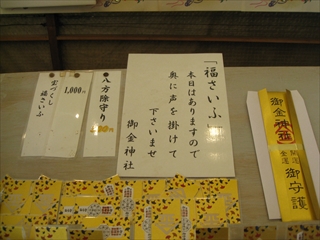 「福さいふ」
本日はありますので
奥に声を掛けて
下さいませ
御金神社
●八方除守り
1,000円
宝づくし
福さいふ
御金神社
開運
金運
御守護